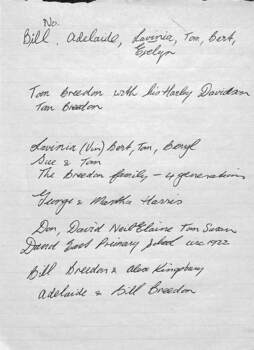 No.
Bill, Adelaide, Lavinia, Tom, Bert,
Evelyn
Tom Breedon with his Harley Davidson
Tom Breedon
Lavinia (Vin) Bert, Tom, Beryl
Sue & Tom
The Breedon family - 4 generations
George & Martha Harris
Don, David Neil Elaine Tom Susan
David East Primary School circ 1922
Bill Breedon & Alex Kingsbury
Adelaide & Bill Breedon